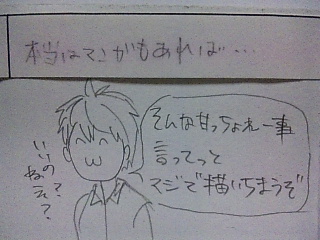 本当はマンガもあれば…
そんな甘っちょれー事
言ってっと
マジで描いちまうぞ
いいの?
ねえ?